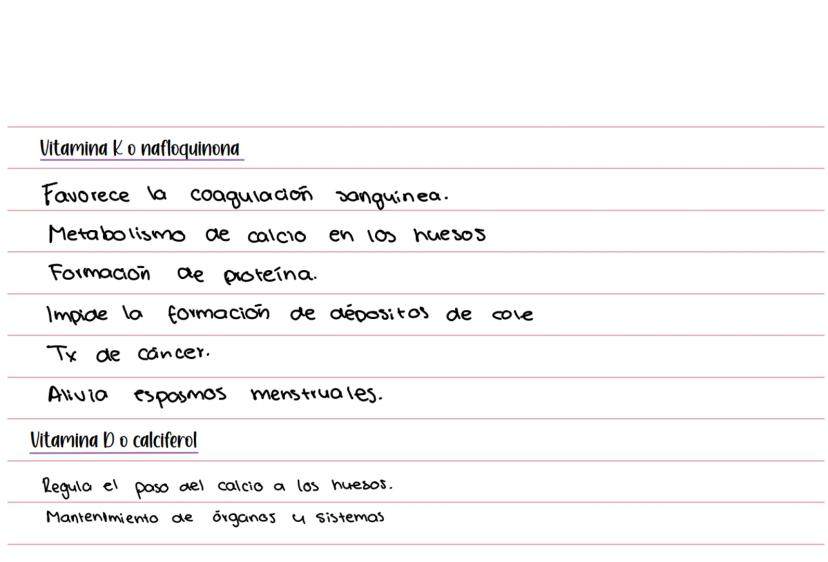 Vitamina K o nafloquinona
Favorece la coagulación sanguínea.
Metabolismo de calcio en los huesos
Formación de proteína.
Impide la formación de dépositos de cole
Tx de cáncer.
Alivia espasmos menstruales.
Vitamina D o calciferol
Regula el paso del calcio a los huesos.
Mantenimiento de órganos y sistemas